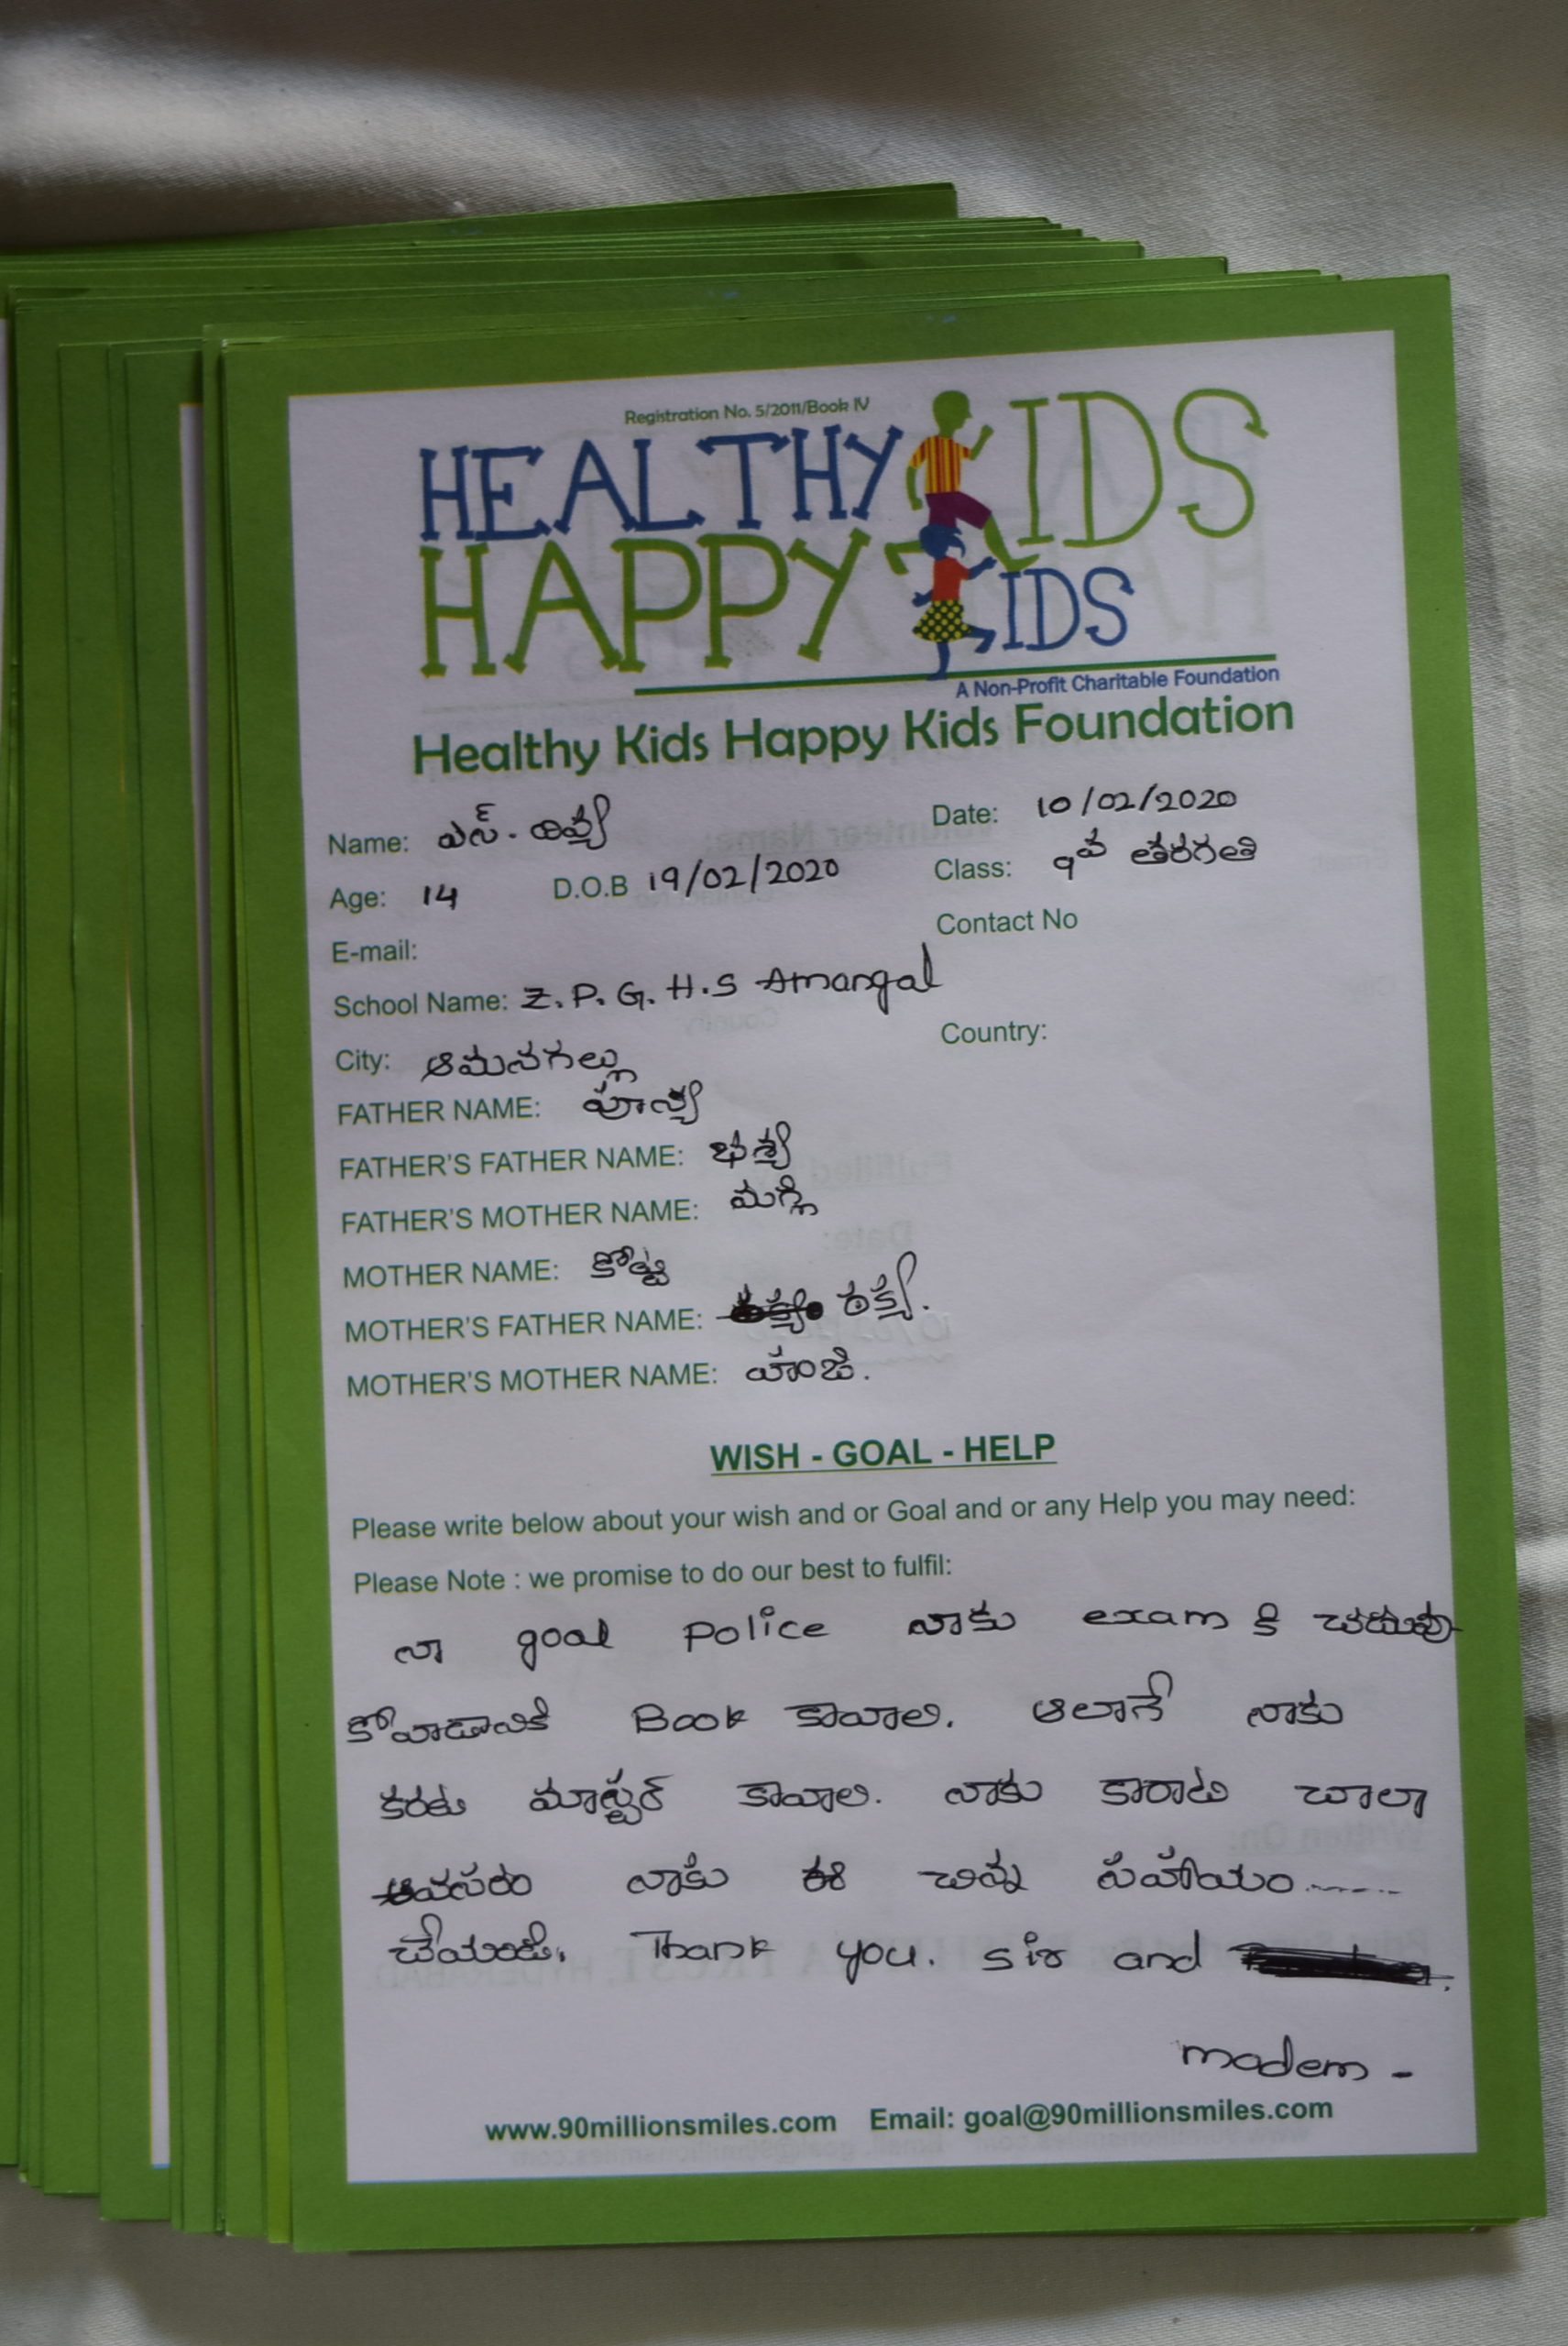 Registration No. 5/2011/Book IV
HEALTHY KIDS
HAPPY KIDS
A Non-Profit Charitable Foundation
Healthy Kids Happy Kids Foundation
Name: ఎస్. దివ్య Date: 10/02/2020
Age: 14 D.O.B 19/02/2020 Class: 9వ తరగతి
E-mail: Contact No
School Name: Z.P.G.H.S Amangal
City: ఆమనగల్లు Country:
FATHER NAME:
FATHER'S FATHER NAME:
FATHER'S MOTHER NAME: మగ్లి
MOTHER NAME:
MOTHER'S FATHER NAME: రక్య.
MOTHER'S MOTHER NAME:
WISH - GOAL - HELP
Please write below about your wish and or Goal and or any Help you may need:
Please Note : we promise to do our best to fulfil:
నా goal police నాకు exam కి చదువు
కోవాడానికి Book కావాలి. ఆలానే నాకు
కరటే మాస్టర్ కావాలి. నాకు కారాటే చాలా
అవసరం నాకు ఈ చిన్న సహాయం........
చేయండి. Thank you. sir and
madem -
www.90millionsmiles.com Email: goal@90millionsmiles.com